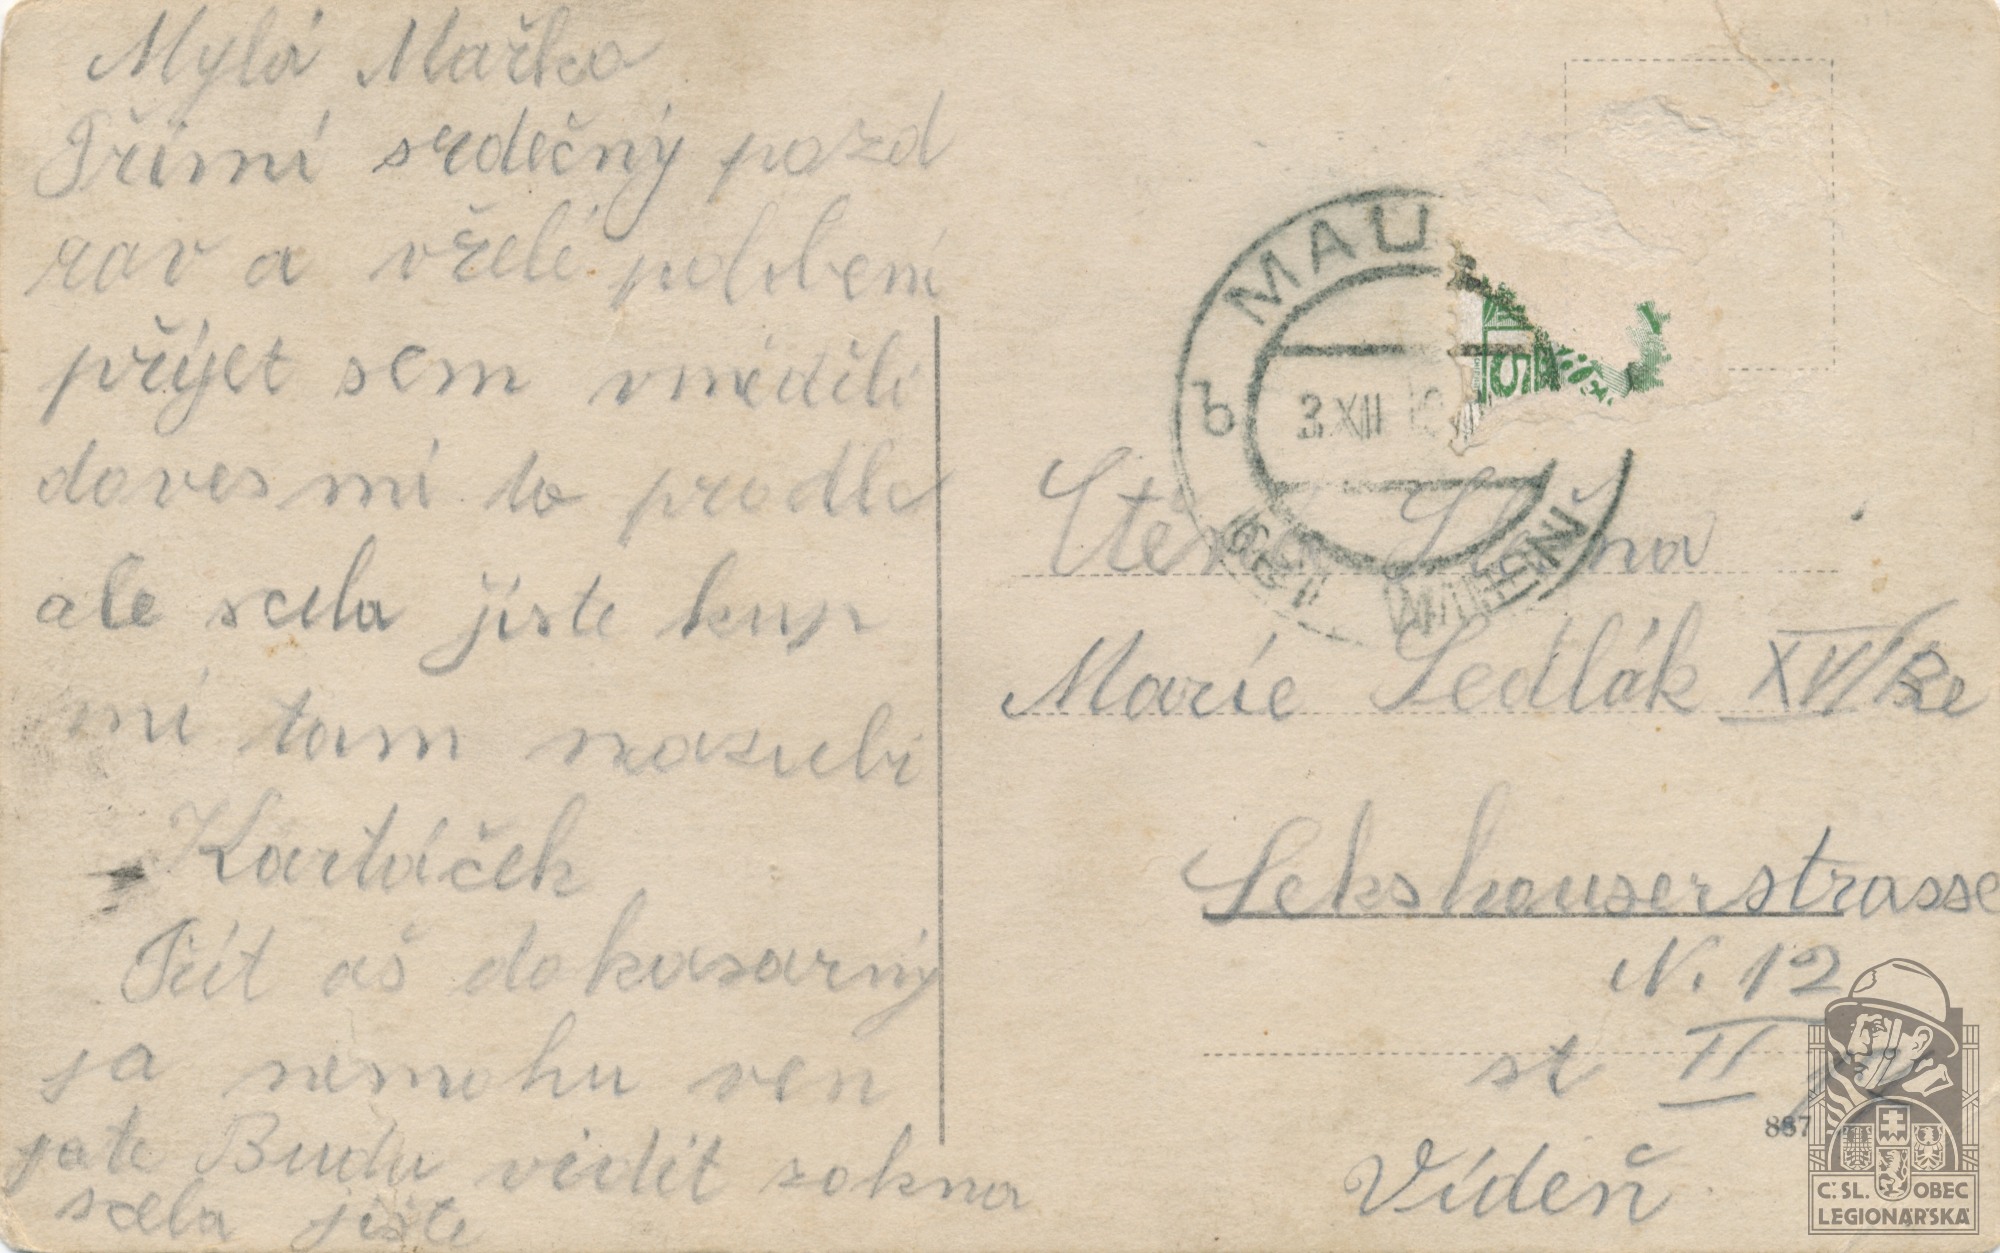 Mylá Mařko
Přimi srdečný pozd
rav a vřelé políbení
příjet sem vnedělí
doves mi to prodle
ale scela jiste kup
mi tam nazubi
Kartáček
Přít aš do kasarny
ja nemohu ven
jate Budu vidit zokna
scela jiste
MAU
b
3.XII
Ctěná Slečna
Marie Sedlák XVI/
Sekshauserstrasse
N. 12
st II
Vídeň
887
Č: SL. OBEC
LEGIONÁŘSKÁ